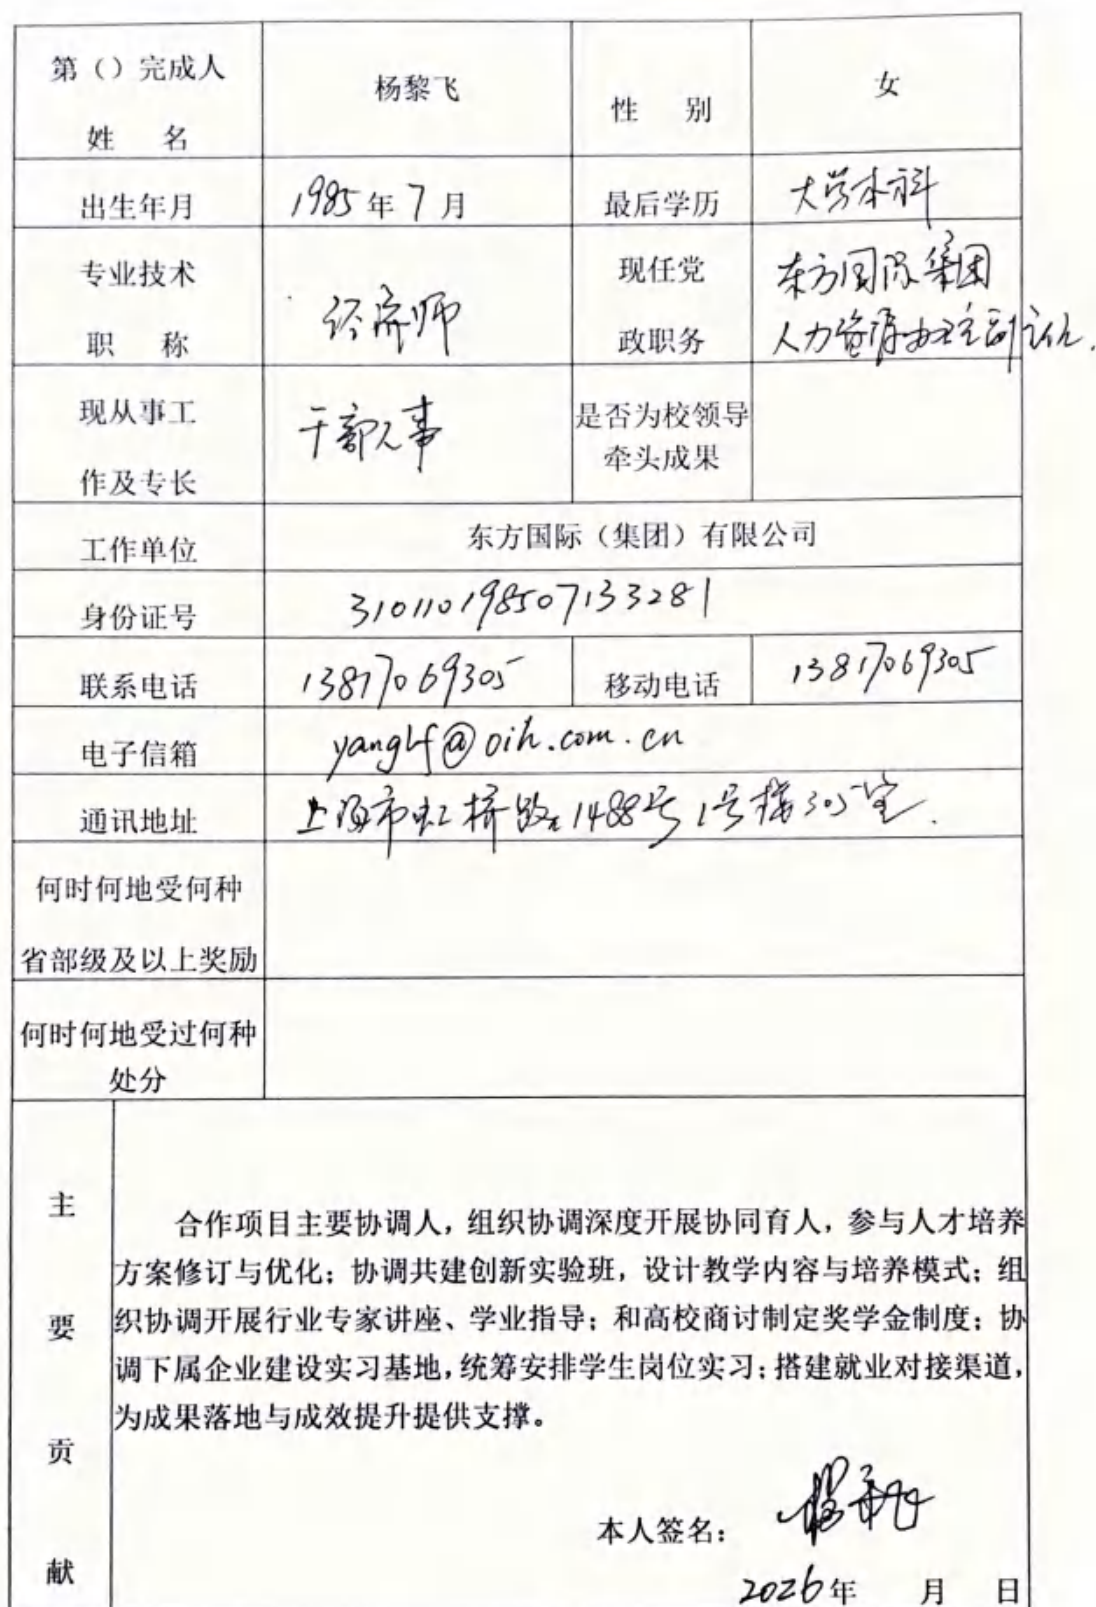 第（）完成人
姓 名
杨黎飞
性 别
女
出生年月
1985年7月
最后学历
大学本科
专业技术
职 称
经济师
现任党
政职务
东方国际集团
人力资源办公室副主任.
现从事工
作及专长
干部人事
是否为校领导
牵头成果
工作单位
东方国际（集团）有限公司
身份证号
310110198507133281
联系电话
13817069305
移动电话
13817069305
电子信箱
yanglf@oih.com.cn
通讯地址
上海市虹桥路1488号1号楼305室.
何时何地受何种
省部级及以上奖励
何时何地受过何种
处分
主
要
贡
献
合作项目主要协调人，组织协调深度开展协同育人，参与人才培养
方案修订与优化；协调共建创新实验班，设计教学内容与培养模式；组
织协调开展行业专家讲座、学业指导；和高校商讨制定奖学金制度；协
调下属企业建设实习基地，统筹安排学生岗位实习；搭建就业对接渠道，
为成果落地与成效提升提供支撑。
本人签名：
2026年 月 日